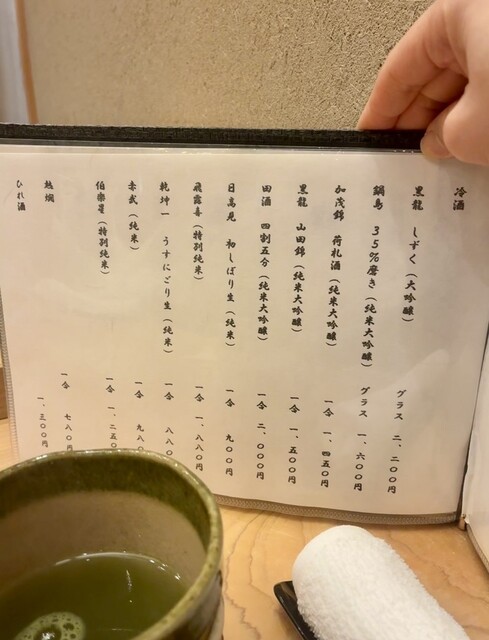 冷酒
黒龍 しずく（大吟醸） グラス 二、二〇〇円
鍋島 35%磨き（純米大吟醸） グラス 一、六〇〇円
加茂錦 荷札酒（純米大吟醸） 一合 一、四五〇円
黒龍 山田錦（純米大吟醸） 一合 一、五〇〇円
田酒 四割五分（純米大吟醸） 一合 二、〇〇〇円
日高見 初しぼり生（純米） 一合 九〇〇円
飛露喜（特別純米） 一合 一、八八〇円
乾坤一 うすにごり生（純米） 一合 八八〇
赤武（純米） 一合 九八
伯楽星（特別純米） 一合 一、二五〇
熱燗 一合 七八〇円
ひれ酒 一、三〇〇円